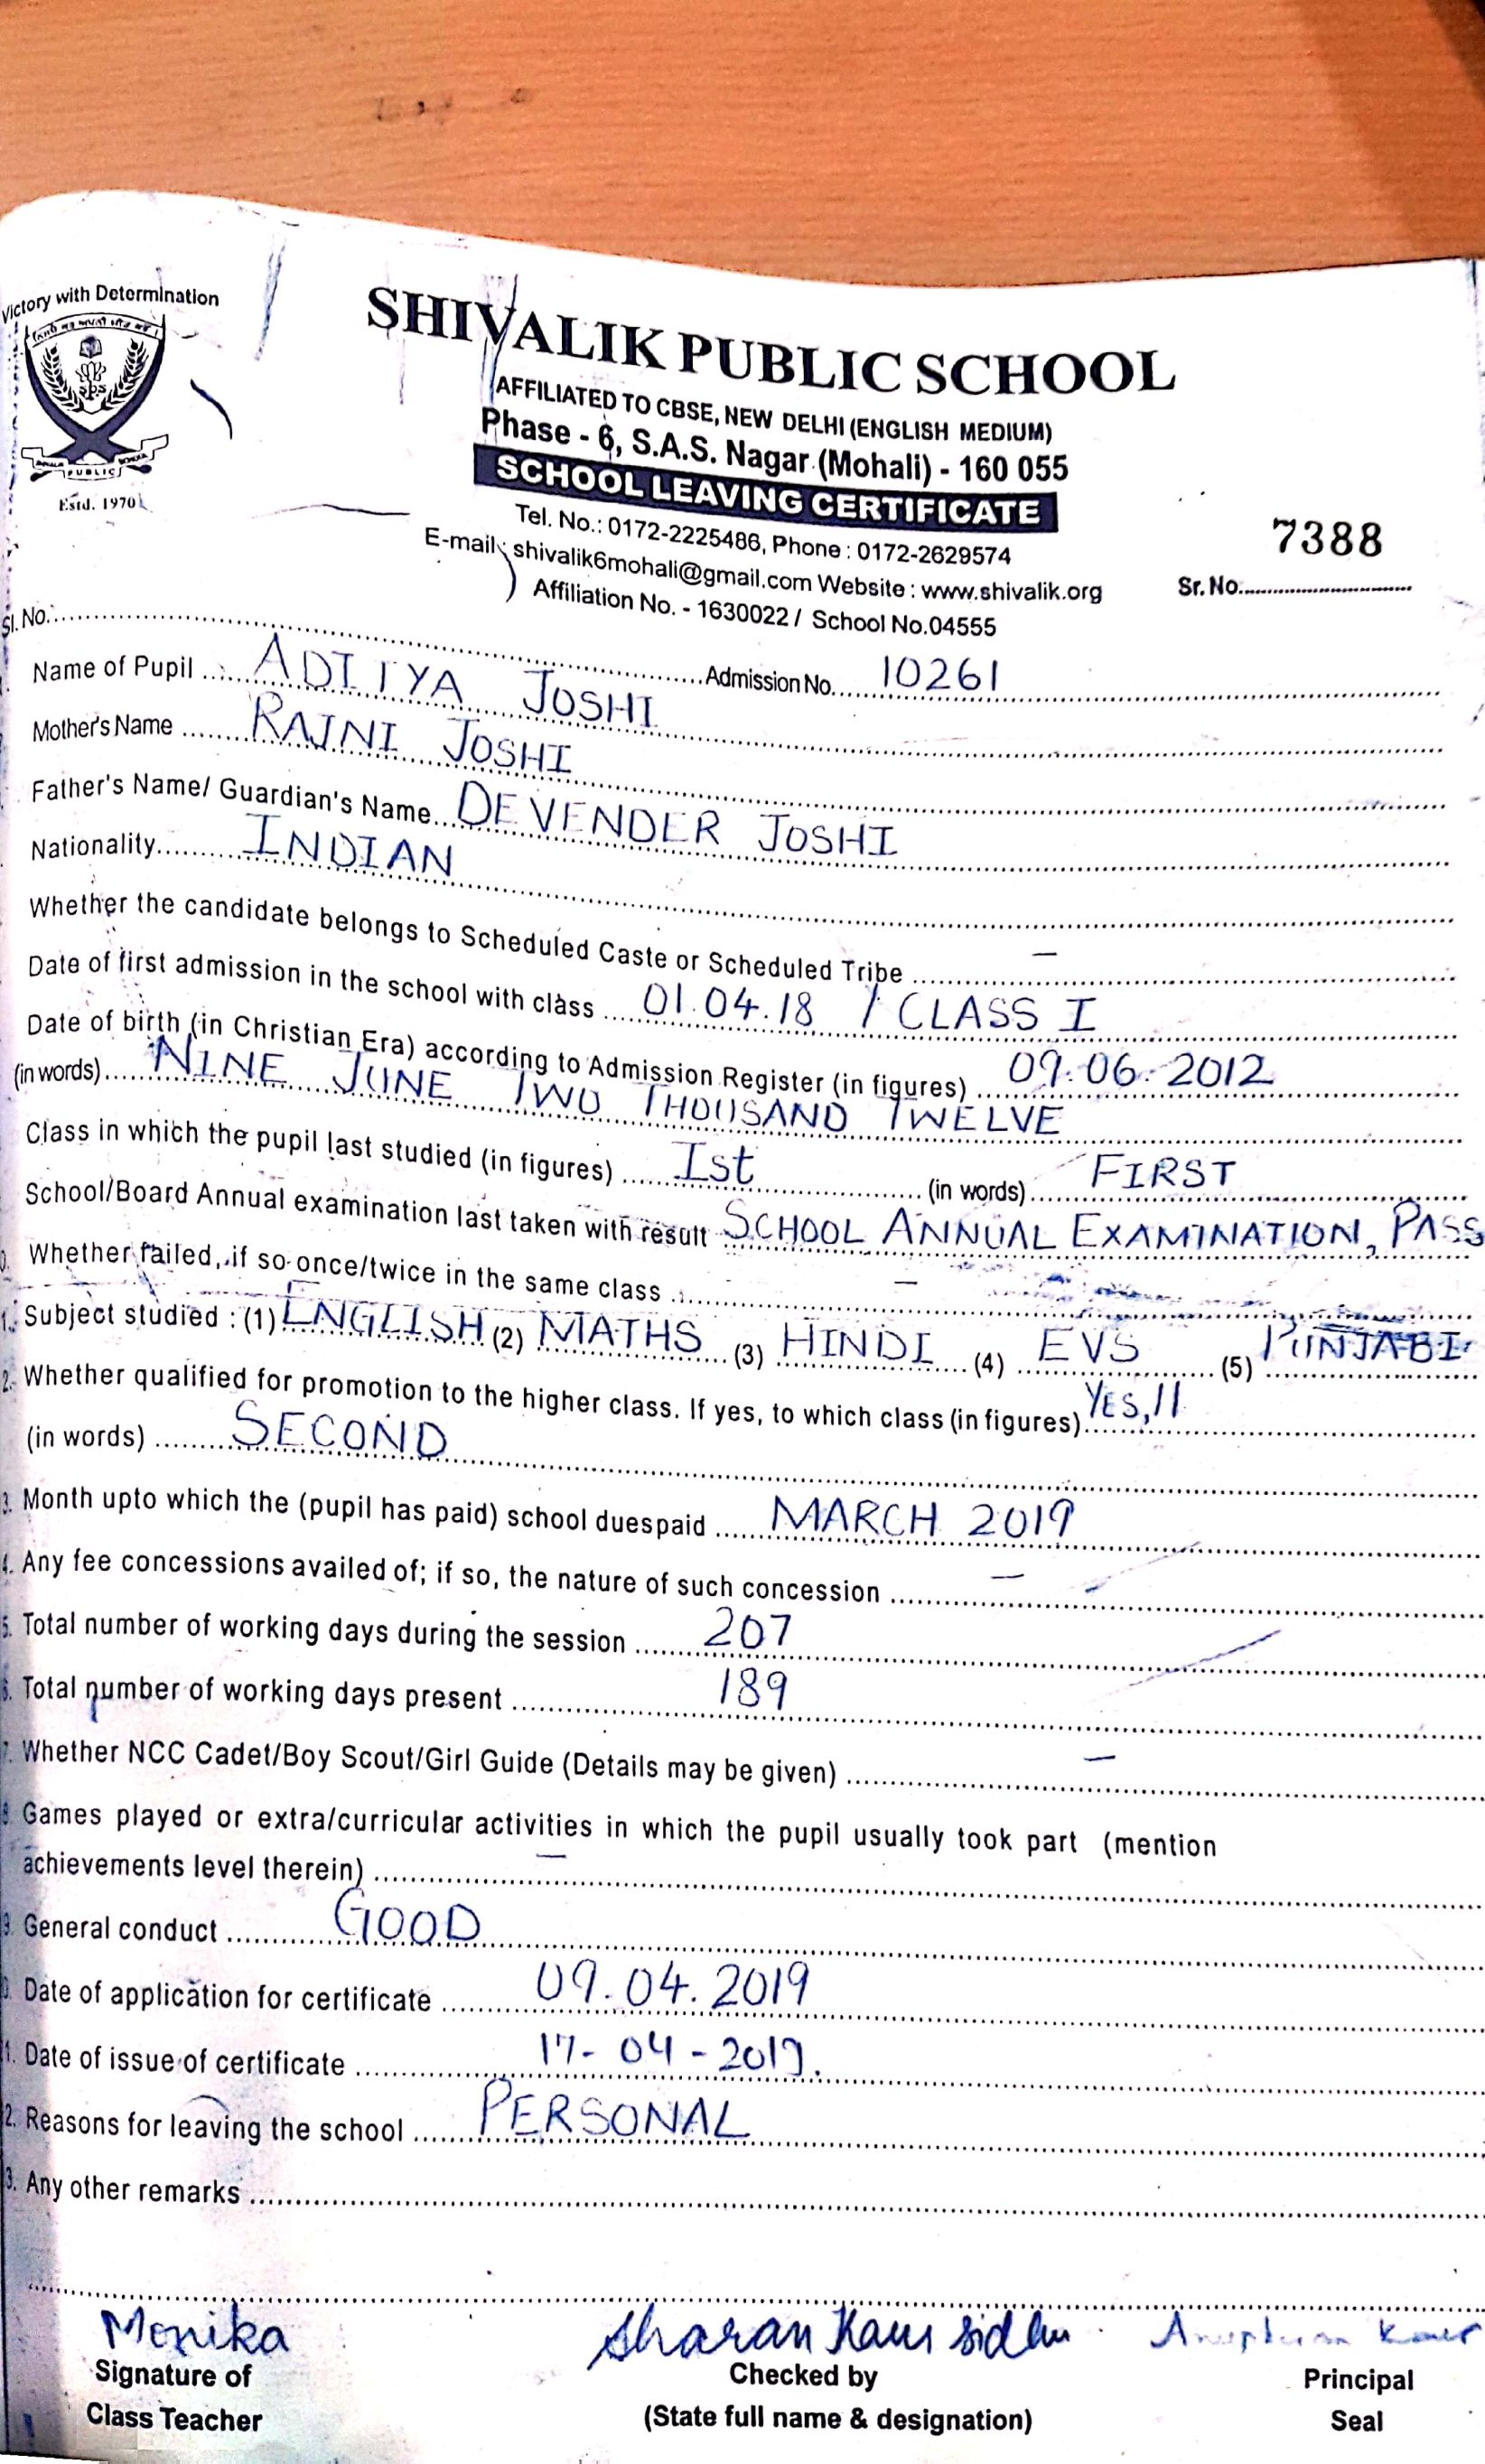 Victory with Determination
PUBLIC
Estd. 1970
SHIVALIK PUBLIC SCHOOL
AFFILIATED TO CBSE, NEW DELHI (ENGLISH MEDIUM)
Phase - 6, S.A.S. Nagar (Mohali) - 160 055
SCHOOL LEAVING CERTIFICATE
Tel. No.: 0172-2225486, Phone : 0172-2629574
E-mail : shivalik6mohali@gmail.com Website : www.shivalik.org
Affiliation No. - 1630022 / School No.04555
7388
Sr. No.
Sl. No. Admission No. 10261
Name of Pupil ADITYA JOSHI
Mother's Name RAJNI JOSHI
Father's Name/ Guardian's Name DEVENDER JOSHI
Nationality INDIAN
Whether the candidate belongs to Scheduled Caste or Scheduled Tribe —
Date of first admission in the school with class 01.04.18 / CLASS I
Date of birth (in Christian Era) according to Admission Register (in figures) 09.06.2012
(in words) NINE JUNE TWO THOUSAND TWELVE
Class in which the pupil last studied (in figures) Ist (in words) FIRST
School/Board Annual examination last taken with result SCHOOL ANNUAL EXAMINATION, PASS
Whether failed, if so once/twice in the same class —
1. Subject studied : (1) ENGLISH (2) MATHS (3) HINDI (4) EVS (5) PUNJABI
2. Whether qualified for promotion to the higher class. If yes, to which class (in figures) YES, II
(in words) SECOND
3. Month upto which the (pupil has paid) school duespaid MARCH 2019
4. Any fee concessions availed of; if so, the nature of such concession —
5. Total number of working days during the session 207
6. Total number of working days present 189
7. Whether NCC Cadet/Boy Scout/Girl Guide (Details may be given) —
8. Games played or extra/curricular activities in which the pupil usually took part (mention
achievements level therein) —
9. General conduct GOOD
0. Date of application for certificate 09.04.2019
1. Date of issue of certificate 17-04-2019.
2. Reasons for leaving the school PERSONAL
3. Any other remarks
Monika Sharan Kaur Sidhu Kaur
Signature of Checked by Principal
Class Teacher (State full name & designation) Seal